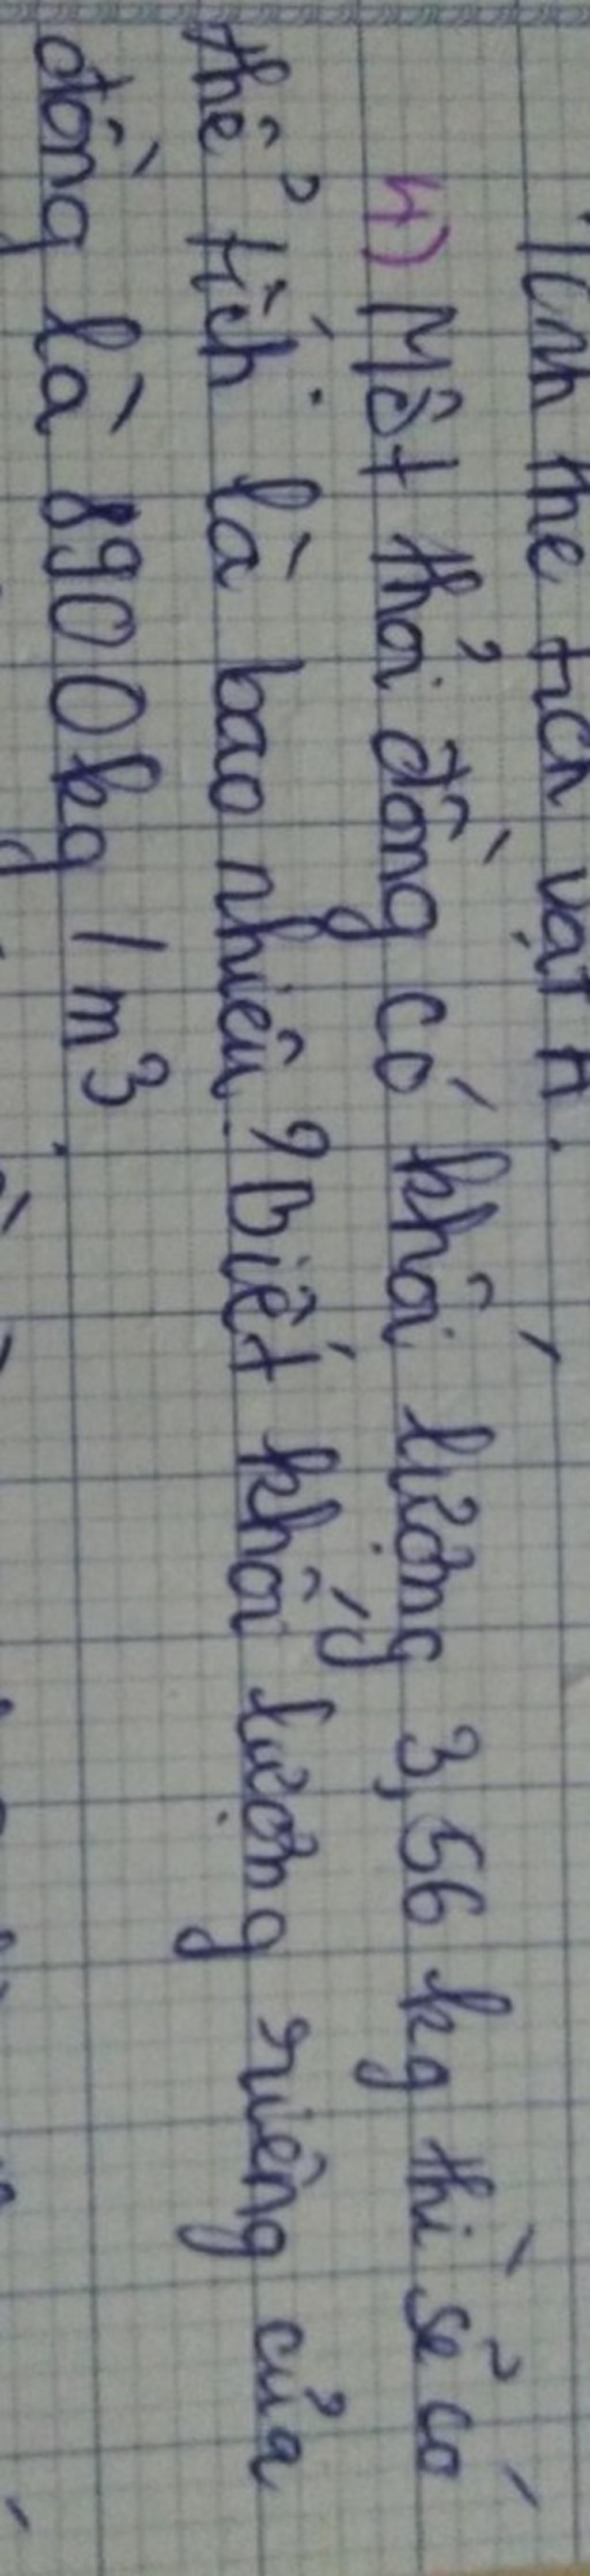 Tính thể tích vật A.
4) Một thỏi đồng có khối lượng 3,56 kg thì sẽ có
thể tích là bao nhiêu? Biết khối lượng riêng của
đồng là 8900kg / m³